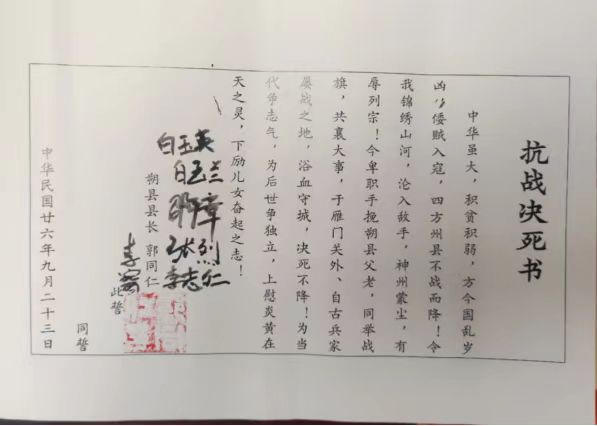 抗战决死书
中华虽大，积贫积弱，方今国乱岁
凶，倭贼入寇，四方州县不战而降！令
我锦绣山河，沦入敌手，神州蒙尘，有
辱列宗！今卑职手挽朔县父老，同举战
旗，共襄大事，于雁门关外、自古兵家
屡战之地，浴血守城，决死不降！为当
代争志气，为后世争独立，上慰炎黄在
天之灵，下励儿女奋起之志！
白玉英
白玉兰
章
张烈
李志仁
朔县县长 郭同仁 此誓
李
同誓
中华民国廿六年九月二十三日